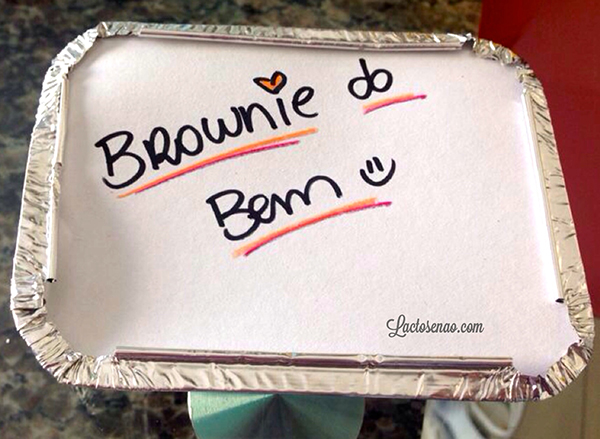 BROWNiE do
Bem =)
Lactosenao.com